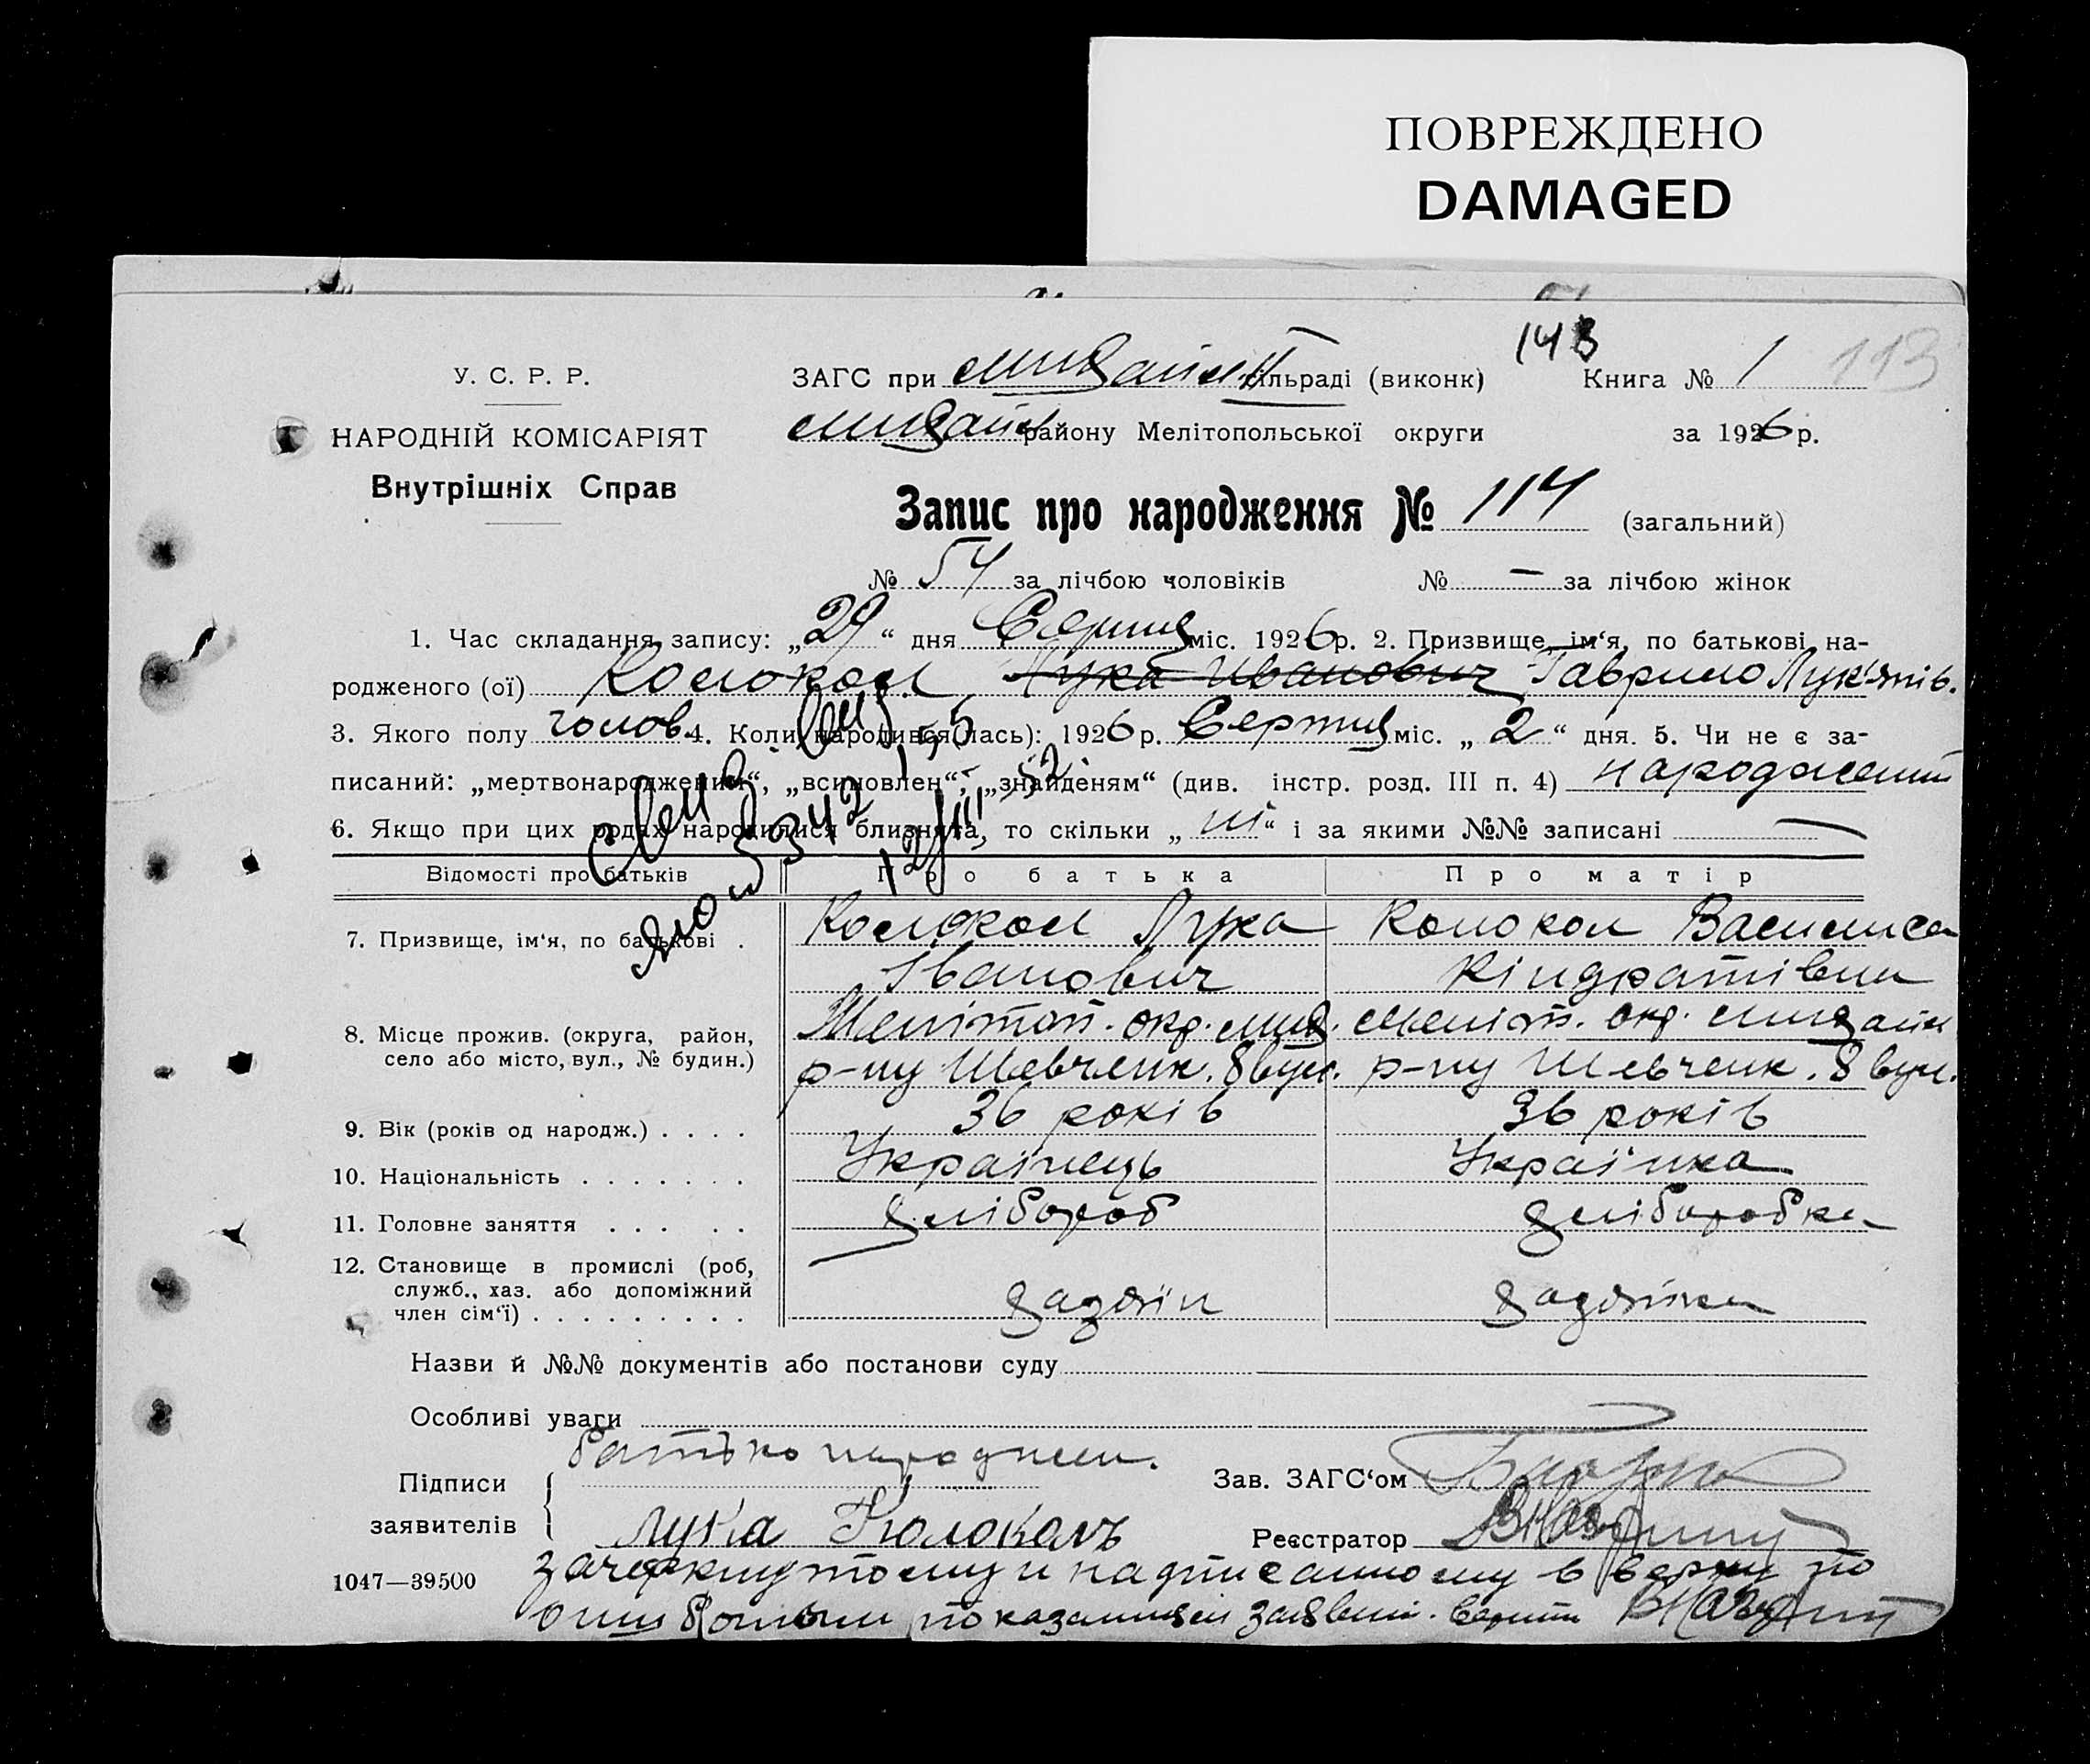 ПОВРЕЖДЕНО
DAMAGED
143
У. С. Р. Р.
НАРОДНІЙ КОМІСАРІЯТ
Внутрішніх Справ
ЗАГС при михайлів сільраді (виконк)
Книга № 1 113
михайл району Мелітопольської округи
за 1926 р.
Запис про народження № 114 (загальний)
№ 54 за лічбою чоловіків № — за лічбою жінок
1. Час складання запису: „29“ дня Серпня міс. 1926 р. 2. Призвище, ім‘я, по батькові на-
родженого (ої) Колокол, Лука Иванович Гаврило Лук‘янів.
3. Якого полу голов. 4. Коли народився(лась): 1926 р. Серпня міс. „2“ дня. 5. Чи не є за-
писаний: „мертвонароджений“, „всиновлен“, „знайденям“ (див. інстр. розд. III п. 4) народжений
6. Якщо при цих родах народилися близнята, то скільки „ні“ і за якими №№ записані —
Відомості про батьків Про батька Про матір
7. Призвище, ім‘я, по батькові . Колокол Лука Колокол Василиса
Іванович Кіндратівна
8. Місце прожив. (округа, район, Мелітоп. окр. мих. Меліт. окр. михайл
село або місто, вул., № будин.) р-ну Шевченк. 8 вул. р-ну Шевченк. 8 вул.
9. Вік (років од народж.) . . . . 36 років 36 років
10. Національність . . . . . . . Українець Українка
11. Головне заняття . . . . . хлібороб хліборобка
12. Становище в промислі (роб,
служб., хаз. або допоміжний
член сім‘ї) . . . . . . . . . хазяїн хазяйка
Назви й №№ документів або постанови суду
Особливі уваги
батько народжен.
Підписи
заявителів
Лука Колоколъ
Зав. ЗАГС‘ом
Реєстратор
1047—39500
зачеркнутому и надписанному в верху по
ошибочным показаниям заявит. верить